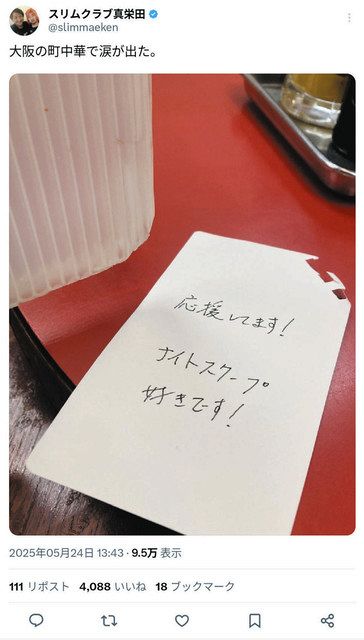 スリムクラブ真栄田
@slimmaeken
大阪の町中華で涙が出た。
応援してます!
ナイトスクープ
好きです!
2025年05月24日 13:43 · 9.5万 表示
111 リポスト 4,088 いいね 18 ブックマーク